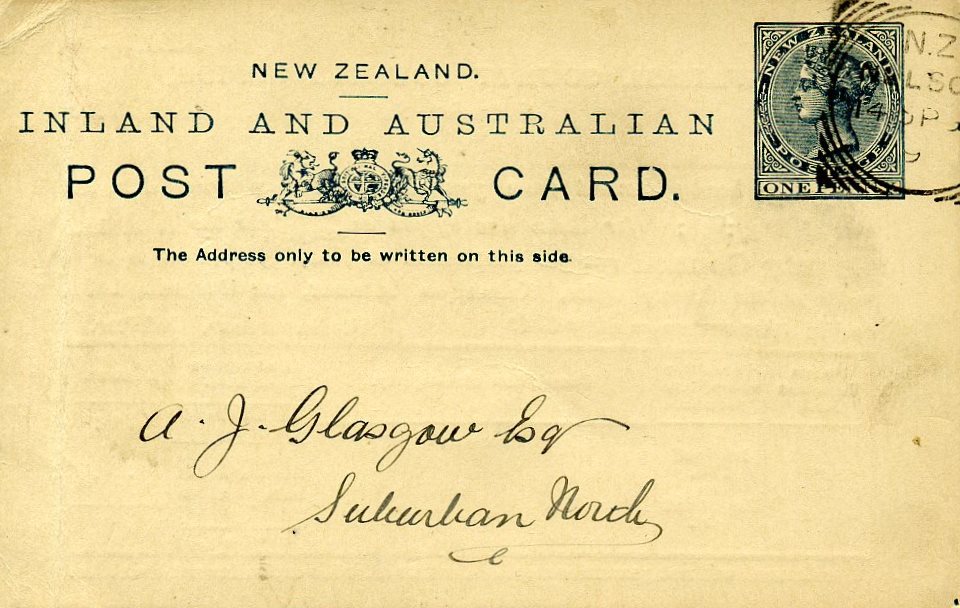 NEW ZEALAND.
INLAND AND AUSTRALIAN
POST CARD.
The Address only to be written on this side.
NEW ZEALAND
POSTAGE
ONE PENNY
N.Z
LSO
14 SP
9
A. J. Glasgow Esq
Suburban North